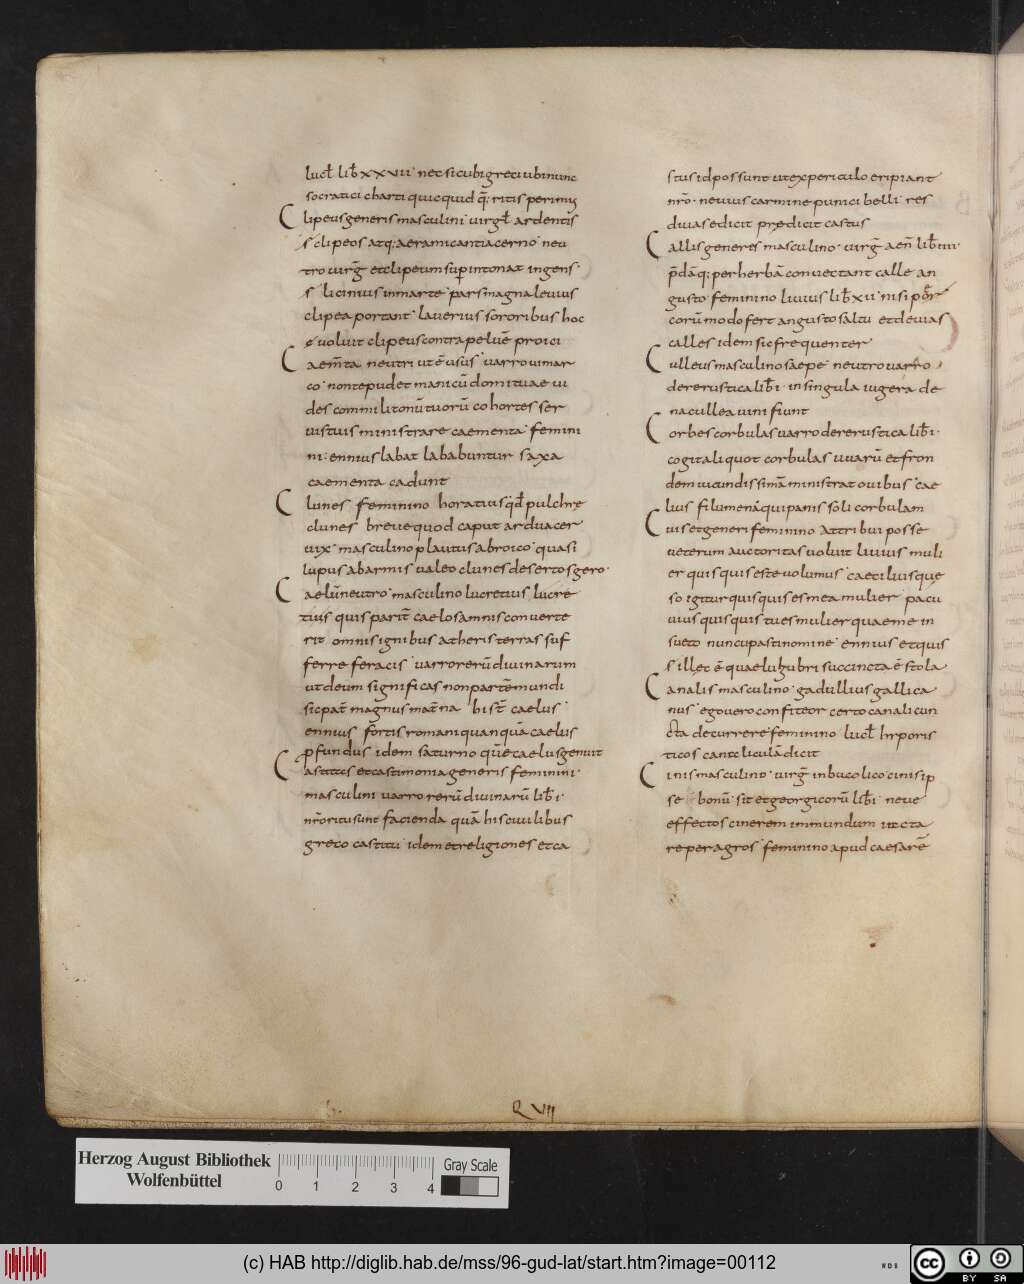 lucł libƀ xxvii · nec sicubi greci ubinunc
socratici charti quicquid q̃; ritis perimus
Clipeus generis masculini · uirgł ardentis
s clipeos atq; aera micantia cerno · neu
tro uirg̃ et clipeum sup̱ intonat ingens ·
s licinius inmarte · pars magna leuius
clipea portant · lauerius sororibus hoc
e uoluit clipeus contra peluē proici
Caem̄ta neutri ut ē usus · uarro uimar
co · non te pudet manicū domi tuae ui
des commilitonū tuorū cohortes ser
uis tuis ministrare caementa · femini
ni : ennius labat labābuntur saxa
caementa cadunt
Clunes feminino horatius q̄d pulchrę
clunes breue quod caput ardua cer
uix · masculino plautus abroico · quasi
lupus abarmis ualeo clunes desertos gero ·
Caelū neutro · masculino lucretius lucre
tius quis parit̄ caelos amnis conuerte
rit omnis ignibus atheris terras suf
ferre feracis · uarro rerū diuinarum
ut deum significas non partē mundi
sic pat̄ magnus mat̄ na his t̄ caelus ·
ennius fortis romani quanquā caelus
profundus idem saturno quē caelus genuit
Castitas et castimonia generis feminini ·
masculini uarro rerū diuinarū libƀ · i ·
nr̄o ritu sunt facienda quā his ciuilibus
greco castitu idem et religiones et ca
stus id possunt ut ex periculo eripiant
nr̄o · neuius carmine punici belli · res
diuas edicit predicit castus
Callis generis masculino · uirg̃ aen̄ libƀ iiii ·
p̄dāq; per herbā conuectant calle an
gusto feminino liuius libƀ xii · nisi pōr
corū modo fert angusto saltu et deuias
calles idem sic frequenter
Culleus masculino saepe · neutro uarro
de re rustica libƀ · i · in singula iugera de
na cullea uini fiunt
Corbes corbulas uarro de re rustica libƀ · i ·
cogitali quot corbulas uuarū et fron
dem iucundissimā ministrat ouibus · cae
lius filumena qui panis soli corbulam
Cuis et generi feminino attribui posse
ueterum auctoritas uoluit liuius muli
er quisquis este uolumus · caecilius que
so igitur quisquis es mea mulier pacu
uius quisquis tu es mulier quae me in
sueto nuncupasti nomine · ennius et quis
s illec ē quae lugubri succincta ē stola
Canalis masculino · gadullius gallica
nus · ego uero confiteor certo canali cun
cta decurrere feminino lucł hrporis
ticos canteliculā dicit
Cinis masculino · uirg̃ in bucolico cinis ip
se bonū · sit et georgicorū libƀ i · neue
effectos cinerem inmundum iacta
re per agros feminino apud caesarē
Q VII
Herzog August Bibliothek
Wolfenbüttel
0 1 2 3 4
Gray Scale
(c) HAB http://diglib.hab.de/mss/96-gud-lat/start.htm?image=00112
WDB
cc BY SA